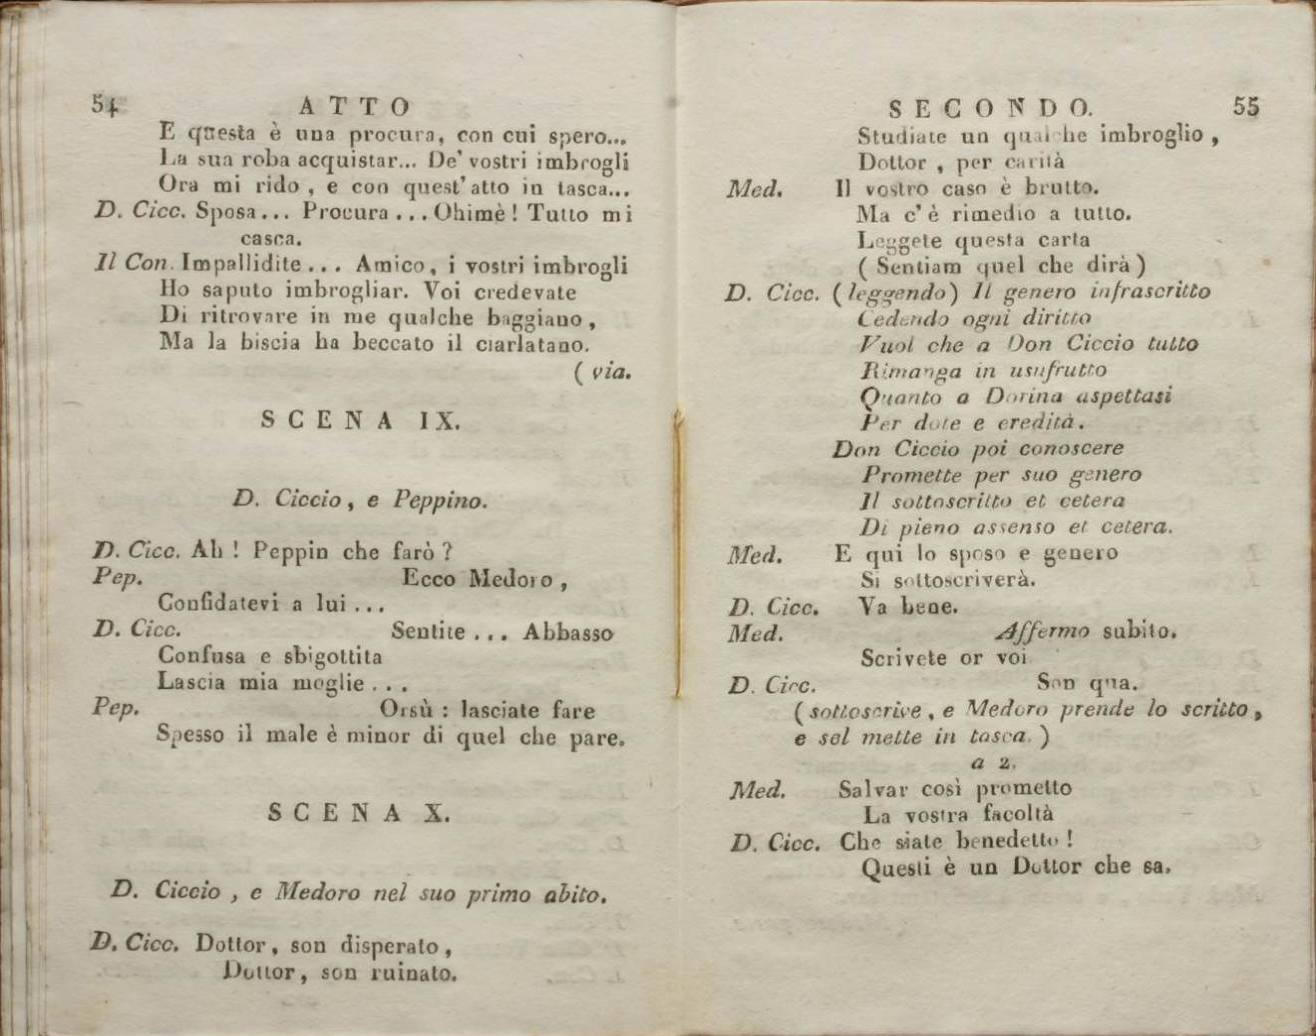 54 ATTO
E questa è una procura, con cui spero...
La sua roba acquistar... De' vostri imbrogli
Ora mi rido, e con quest'atto in tasca...
D. Cicc. Sposa... Procura... Ohimè! Tutto mi
casca.
Il Con. Impallidite... Amico, i vostri imbrogli
Ho saputo imbrogliar. Voi credevate
Di ritrovare in me qualche baggiano,
Ma la biscia ha beccato il ciarlatano.
(via.
SCENA IX.
D. Ciccio, e Peppino.
D. Cicc. Ah! Peppin che farò?
Pep. Ecco Medoro,
Confidatevi a lui...
D. Cicc. Sentite... Abbasso
Confusa e sbigottita
Lascia mia moglie...
Pep. Orsù: lasciate fare
Spesso il male è minor di quel che pare.
SCENA X.
D. Ciccio, e Medoro nel suo primo abito.
D. Cicc. Dottor, son disperato,
Dottor, son ruinato.
SECONDO. 55
Studiate un qualche imbroglio,
Dottor, per carità
Med. Il vostro caso è brutto.
Ma c'è rimedio a tutto.
Leggete questa carta
(Sentiam quel che dirà)
D. Cicc. (leggendo) Il genero infrascritto
Cedendo ogni diritto
Vuol che a Don Ciccio tutto
Rimanga in usufrutto
Quanto a Dorina aspettasi
Per dote e eredità.
Don Ciccio poi conoscere
Promette per suo genero
Il sottoscritto et cetera
Di pieno assenso et cetera.
Med. E qui lo sposo e genero
Si sottoscriverà.
D. Cicc. Va bene.
Med. Affermo subito.
Scrivete or voi
D. Cicc. Son qua.
(sottoscrive, e Medoro prende lo scritto,
e sel mette in tasca.)
a 2.
Med. Salvar così prometto
La vostra facoltà
D. Cicc. Che siate benedetto!
Questi è un Dottor che sa.